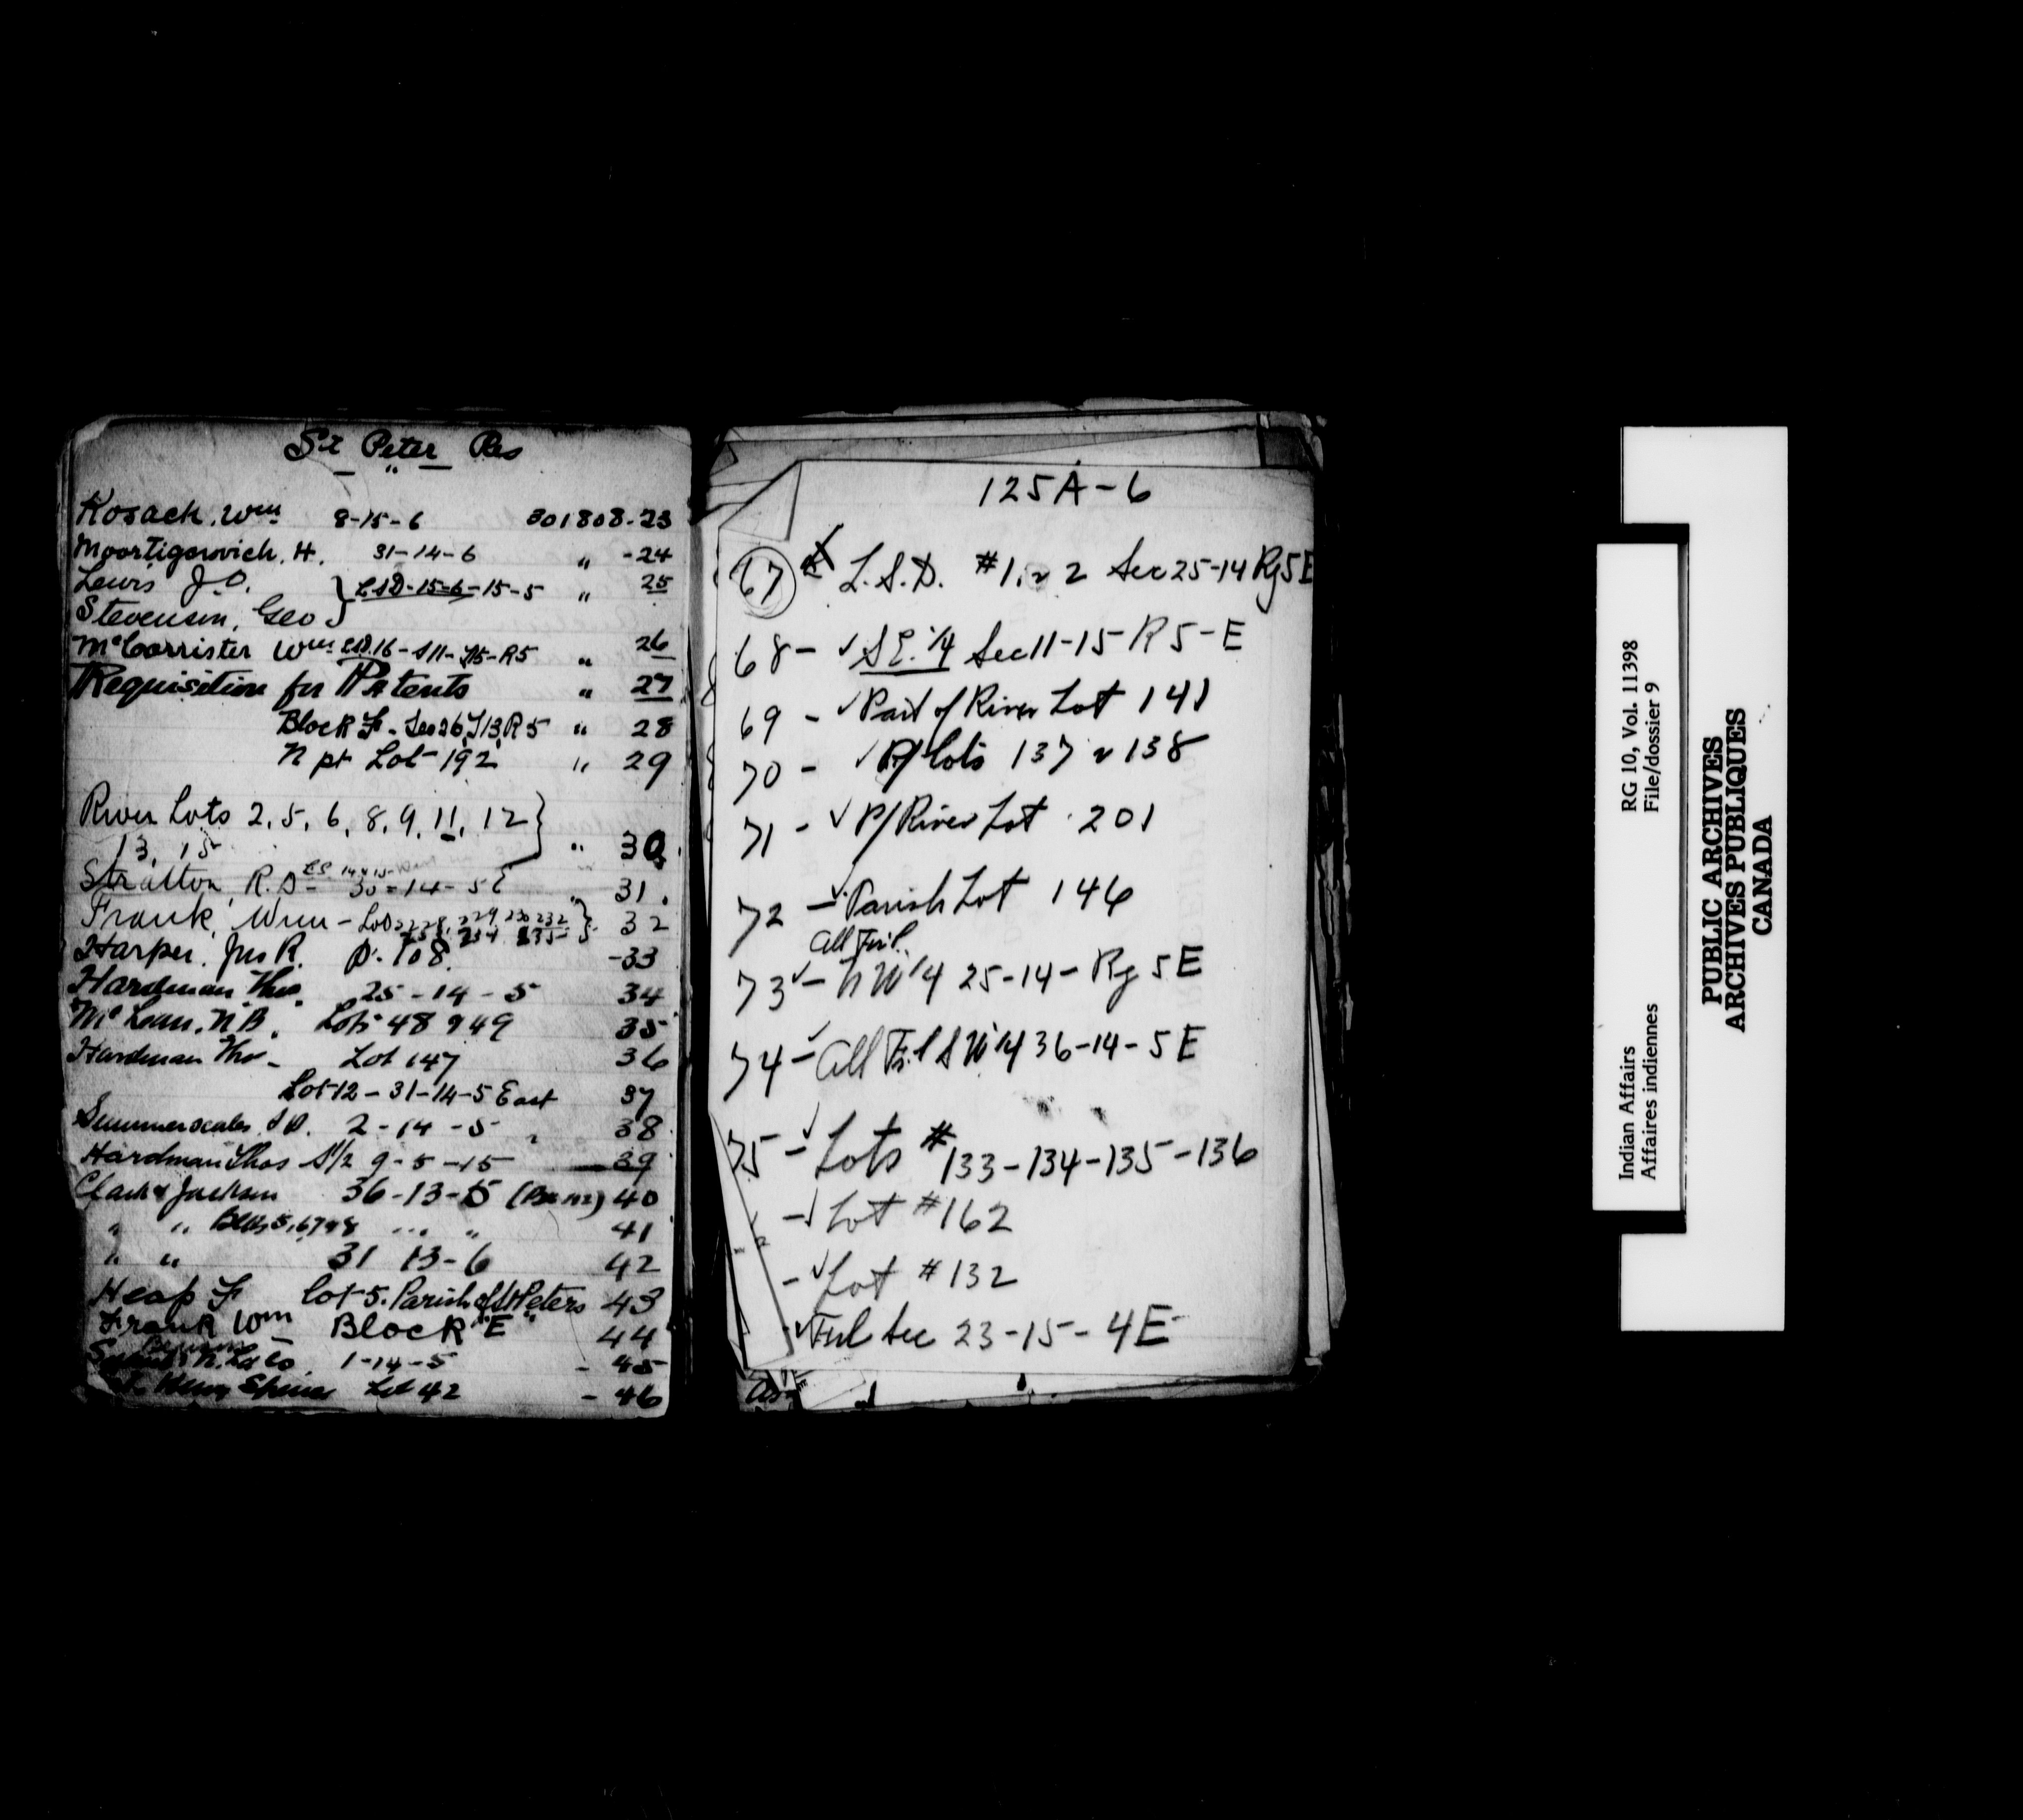 St Peter Res
Kosack, Wm 8-15-6 301808-23
Moortigorovich, H. 31-14-6 " -24
Lewis J.O. } LSD-15-6-15-5 " 25
Stevenson, Geo }
McCorrister Wm LSD.16-S11-T15-R5 " 26
Requisition for Patents " 27
Block F - Sec 26, T13, R5 " 28
N pt Lot 192 " 29
River Lots 2, 5, 6, 8, 9, 11, 12 }
13, 15 } " 30
Stratton, R.D - 30-14-5E " 31.
Frank, Wm - Lots 228, 229, 230 232 } 32
234 235
Harper, Jno R. 108. -33
Hardman Thos. 25-14-5 34
McLean, N.B. Lots 48 & 49 35
Hardman Thos - Lot 147 36
Lot 12 - 31-14-5 East 37
Summerscales, 2-14-5 " 38
Hardman Thos S1/2 9-5-15 39
Clark & Jackson 36-13-5 40
" " Blks 5, 6, 7 & 8 ... " 41
" " 31 13-6 42
Heap F lot 5. Parish of St Peters 43
Frank Wm Block "E" 44
1-14-5 - 45
Henry Spence Lot 42 - 46
125A-6
67 L.S.D. #1, & 2 Sec 25-14 Rg 5 E
68 - ✓ S E. 1/4 Sec 11-15-R 5-E
69 - ✓ Part of River Lot 141
70 - ✓ P/lots 137 & 138
71 - ✓ P/River Lot 201
72 - ✓ Parish Lot 146
All Frl.
73 ✓ - N W 1/4 25-14 - Rg 5 E
74 - ✓ All Frl S W 1/4 36-14-5 E
75 - ✓ Lots #133-134-135-136
- ✓ Lot #162
- ✓ Lot #132
- ✓ Frl Sec 23-15-4E
Indian Affairs RG 10, Vol. 11398
Affaires indiennes File/dossier 9
PUBLIC ARCHIVES
ARCHIVES PUBLIQUES
CANADA